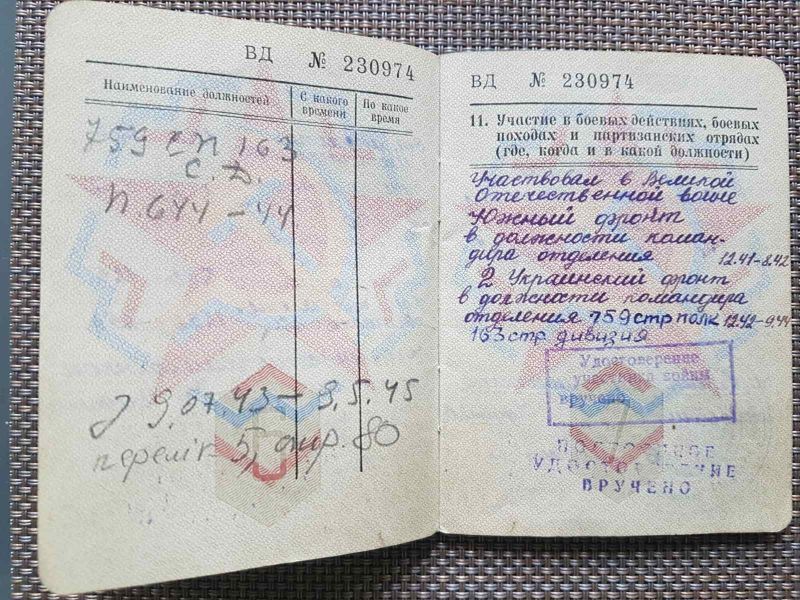 ВД № 230974
Наименование должностей
С какого времени
По какое время
759 СП 163
С.Д.
П. 644 – 44
З 9.07.43 – 9.5.45
перелік 5, 80
ВД № 230974
11. Участие в боевых действиях, боевых
походах и партизанских отрядах
(где, когда и в какой должности)
Участвовал в Великой
Отечественной войне
Южный фронт
в должности коман-
дира отделения 12.41–8.42
2 Украинский фронт
в должности командира
отделения 759 стр полк 12.42–9.44
163 стр дивизия
Удостоверение
участника войны
вручено
УДОСТОВЕРЕНИЕ
ВРУЧЕНО